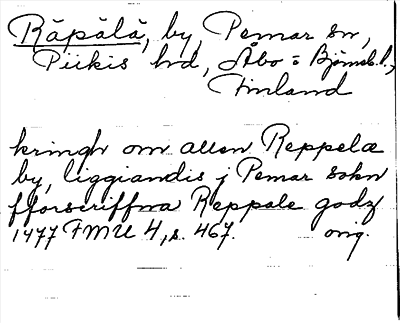 Räpälä, by, Pemar sn,
Piikis hd, Åbo = Björneb. l.,
Finland
kringh om allen Reppelæ
by, liggiandis j Pemar sokn
fforscriffna Reppale godz
1477 FMU 4, s. 467. orig.